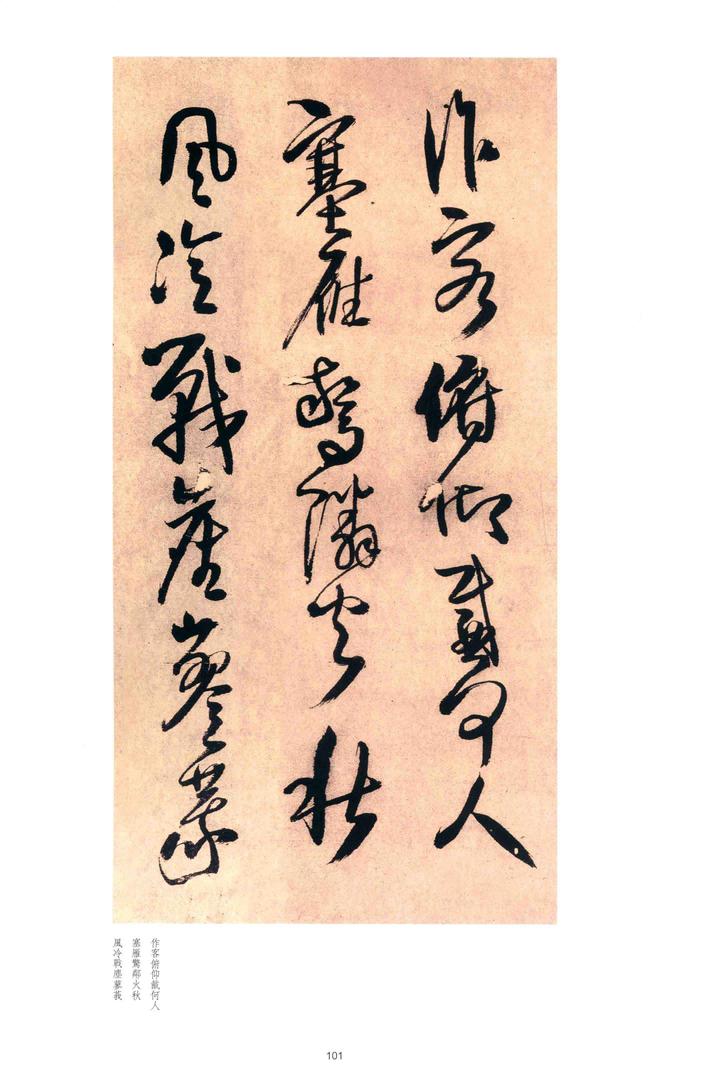 作客俯仰戴何人
塞雁驚隣火秋
風冷戰塵蓼莪
作客俯仰戴何人
塞雁驚鄰火秋
風冷戰塵蓼莪
101